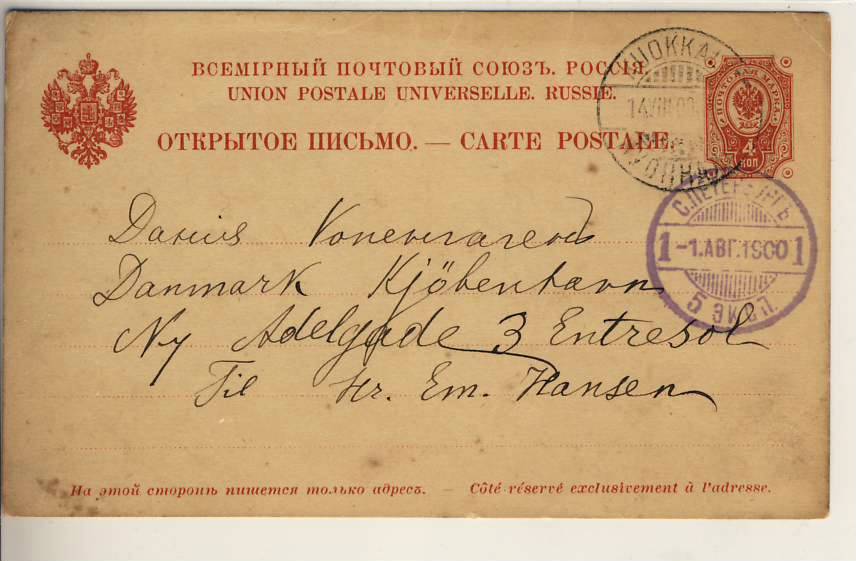 ВСЕМІРНЫЙ ПОЧТОВЫЙ СОЮЗЪ. РОССІЯ.
UNION POSTALE UNIVERSELLE. RUSSIE.
ОТКРЫТОЕ ПИСЬМО. — CARTE POSTALE.
14 VIII
ПОЧТОВАЯ МАРКА
4
КОП
С.ПЕТЕРБУРГЪ
1 -1.АВГ.1900 1
5 ЭКСП.
Danmark Kjöbenhavn
Ny Adelgade 3 Entresol
Til Hr. Em. Hansen
На этой сторонѣ пишется только адресъ. — Côté réservé exclusivement à l'adresse.